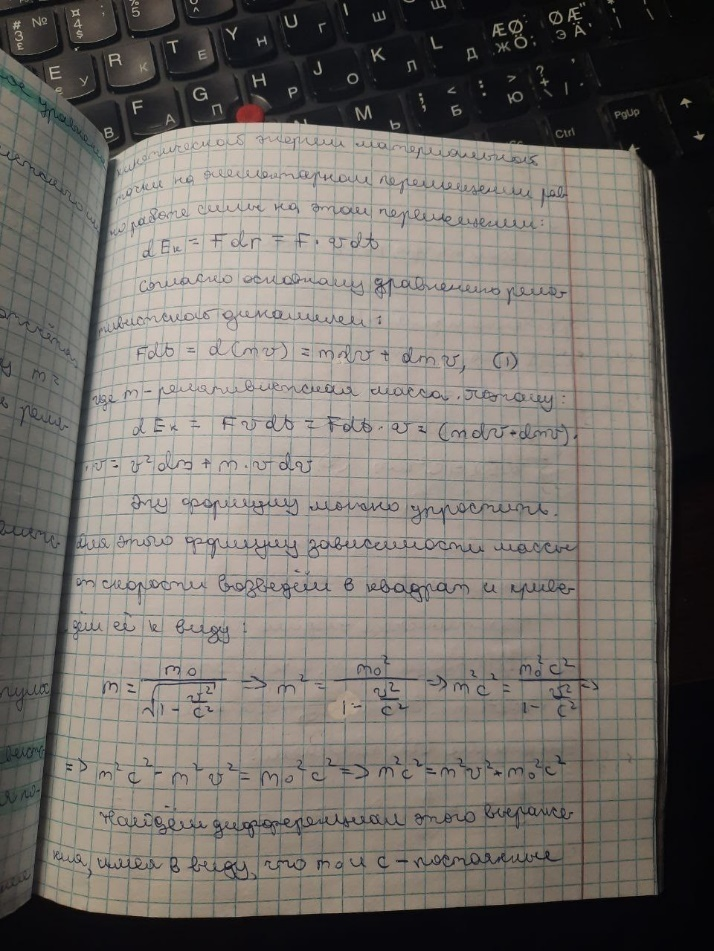 кинетической энергии материальной
точки на элементарном перемещении рав-
но работе силы на этом перемещении:
dEк = Fdr = F · vdt
Согласно основному уравнению реля-
тивистской динамики:
Fdt = d(mv) = mdv + dmv, (1)
где m - релятивистская масса. Поэтому:
dEк = Fvdt = Fdt · v = (mdv+dmv) ·
· v = v²dm + m · vdv
Эту формулу можно упростить.
Для этого формулу зависимости массы
от скорости возведём в квадрат и приве-
дём её к виду:
m = m₀/√(1 - v²/c²) => m² = m₀²/(1 - v²/c²) => m²c² = m₀²c²/(1 - v²/c²) =>
=> m²c² - m²v² = m₀²c² => m²c² = m²v² + m₀²c²
Найдём дифференциал этого выраже-
ния, имея в виду, что m₀ и c - постоянные